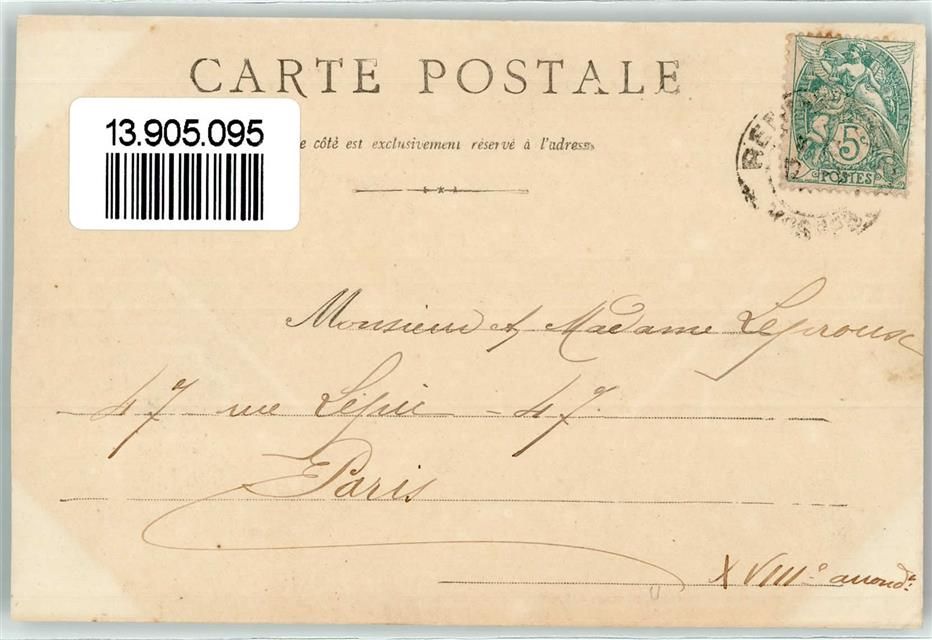 CARTE POSTALE
13.905.095
côté est exclusivement réservé à l'adresse
5c
POSTES
Monsieur & Madame Leprouse
47 rue Lepic - 47
Paris
XVIIIe arrondt